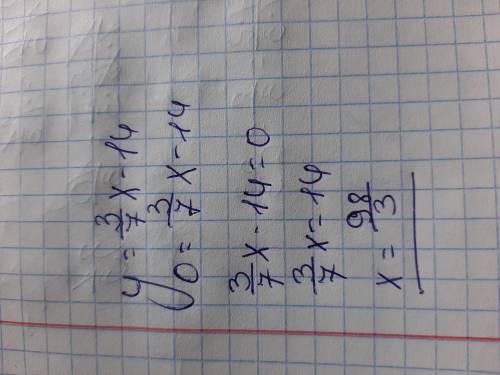 y = 3/7 x - 14
0 = 3/7 x - 14
3/7 x - 14 = 0
3/7 x = 14
x = 98/3